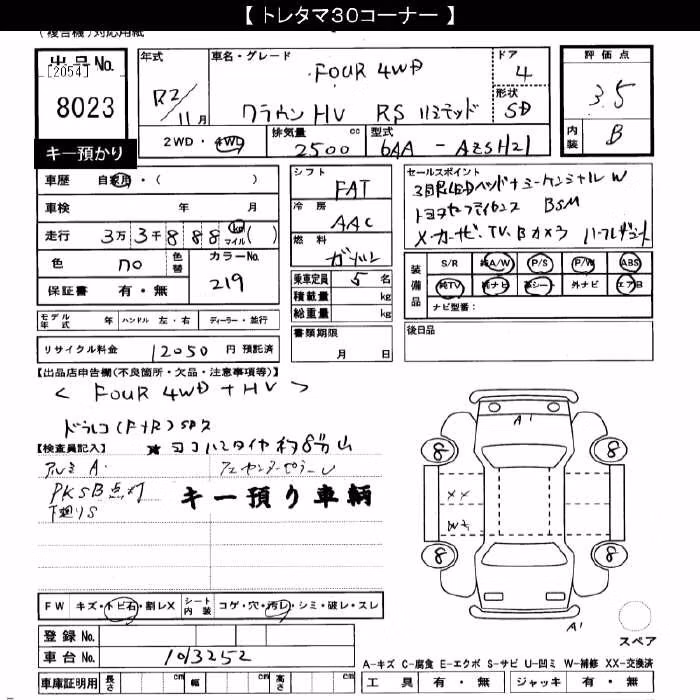 【 トレタマ30コーナー 】
(複合機)対応用紙
出品No.
[2054]
8023
キー預かり
年式
R2/11月
車名・グレード
FOUR 4WD
クラウン HV RS リミテッド
ドア
4
形状
SD
評価点
3.5
内装
B
2WD・4WD
排気量 2500 cc
型式 6AA - AZSH21
車歴 自家用・( )
車検 年 月
走行 3万3千888 km マイル ( )
色 no 色替
カラーNo. 219
保証書 有・無
モデル年式 年 ハンドル 左・右 ディーラー・並行
リサイクル料金 12050 円 預託済
シフト FAT
冷房 AAC
燃料 ガソリン
乗車定員 5 名
積載量 kg
総重量 kg
書類期限
月 日
セールスポイント
3眼LEDヘッド
トヨタセーフティセンス BSM
TV. Bカメラ ハーフレザーシート
装備品 S/R 純A/W P/S P/W ABS
純TV 純ナビ 革シート 外ナビ エアB
ナビ型番:
後日品
【出品店申告欄(不良箇所・欠品・注意事項等)】
< FOUR 4WD + HV >
ドラレコ(F+R)
★ヨコハマタイヤ約8分山
【検査員記入】
アルミ A.
PKSB点灯
下廻りS
キー預り車輌
FW キズ・トビ石・割レX シート内装 コゲ・穴・汚レ・シミ・破レ・スレ
登録No.
車台No. 1013252
車庫証明用 長さ cm 幅 cm 高さ cm
A'
8 8
XX
W2
8 8
A'
スペア
A-キズ C-腐食 E-エクボ S-サビ U-凹ミ W-補修 XX-交換済
工具 有・無 ジャッキ 有・無